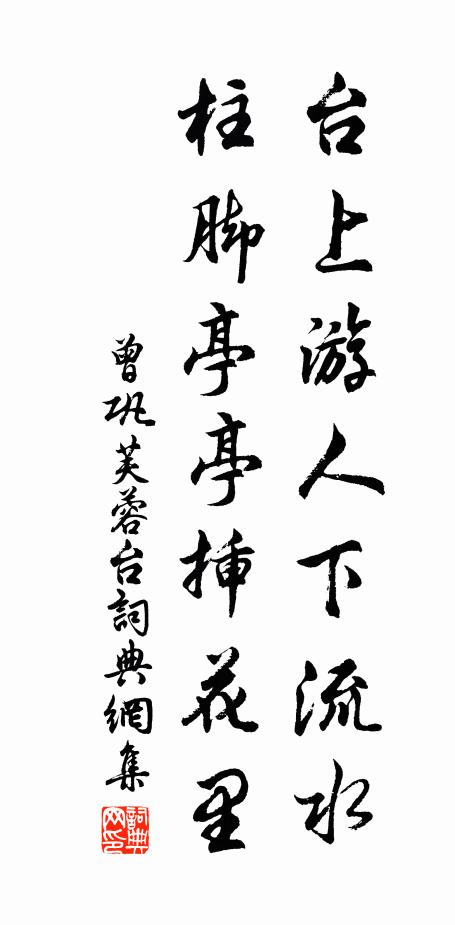 台上游人下流水
柱脚亭亭插花里
曾巩芙蓉台詞典網集
詞典網印